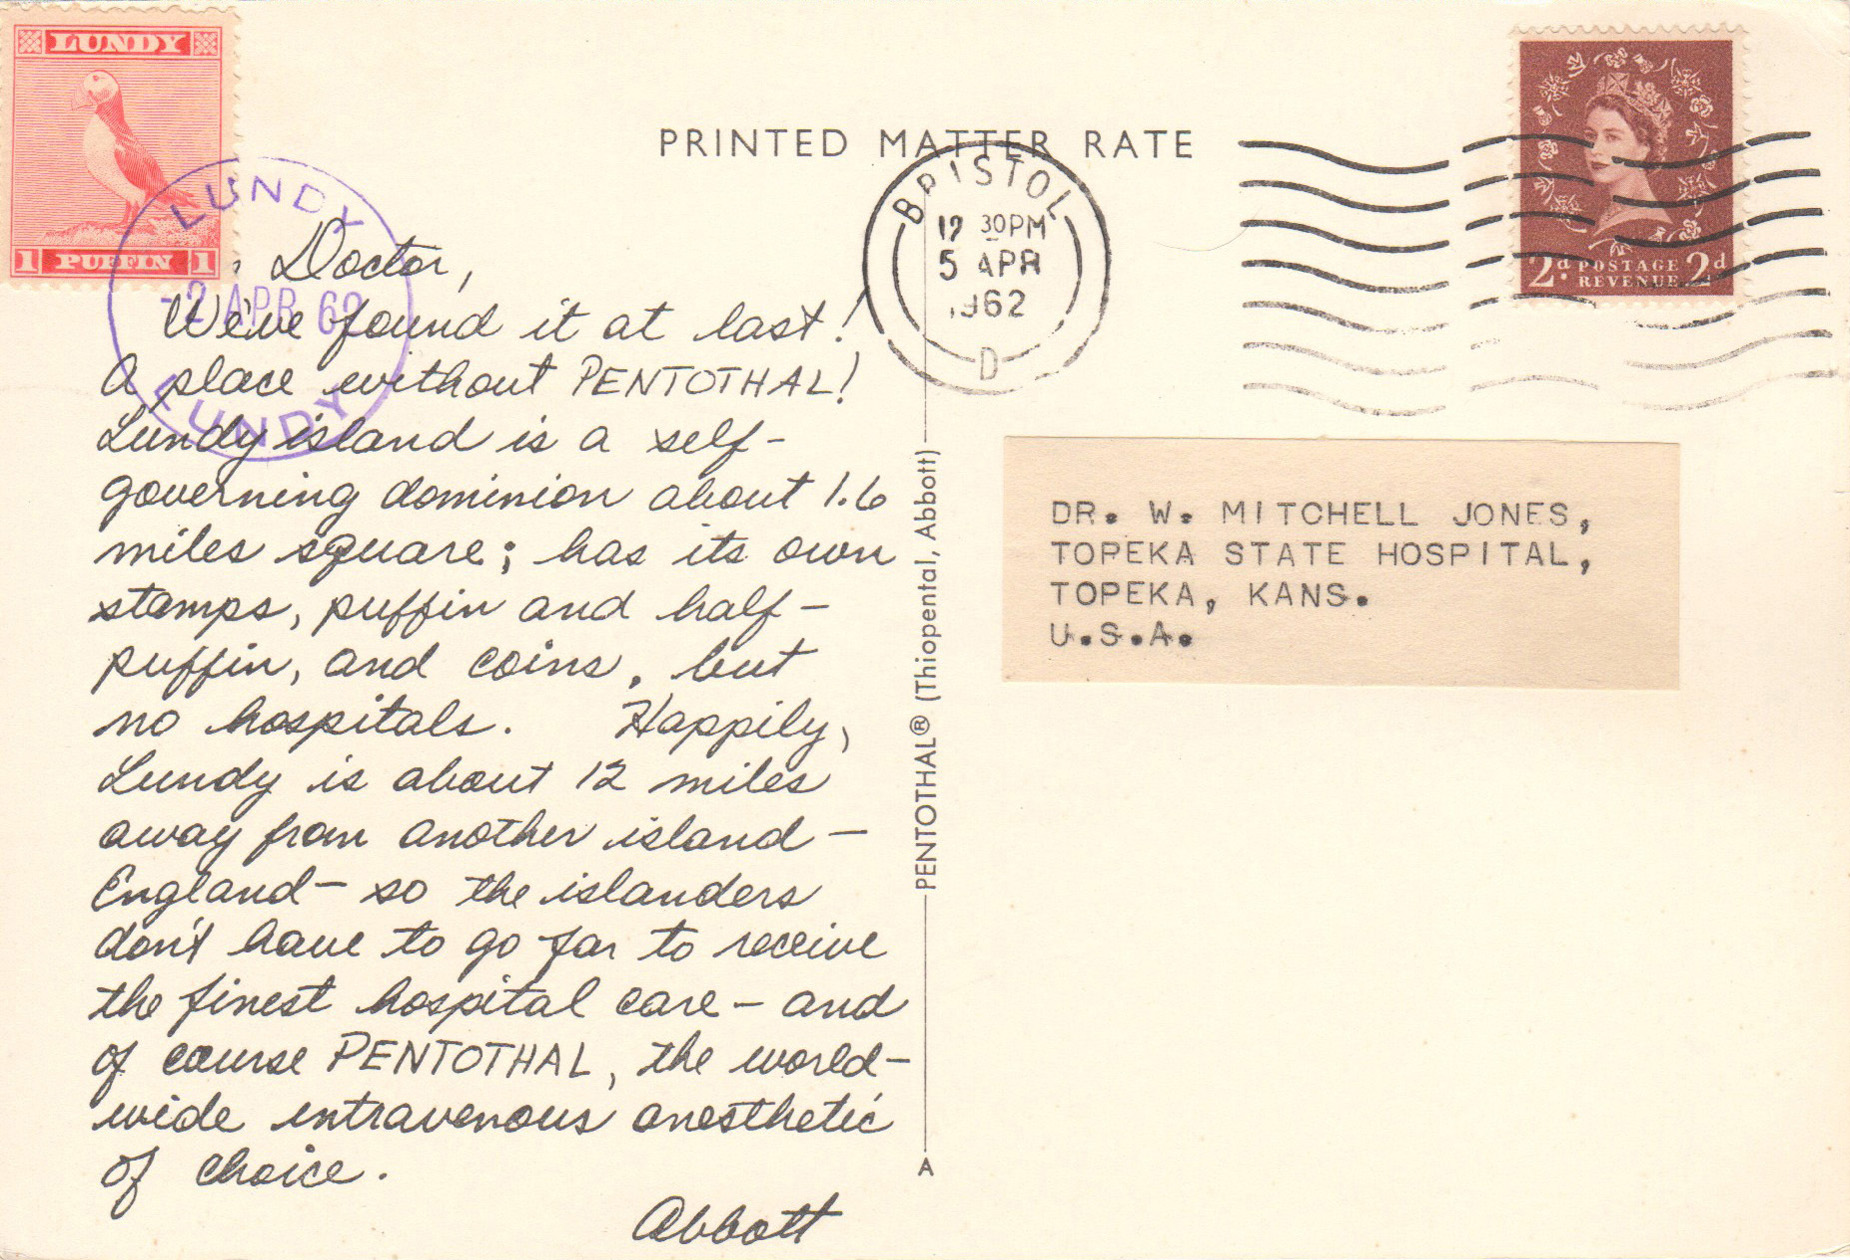 LUNDY
1 PUFFIN 1
LUNDY
-2 APR 62
LUNDY
PRINTED MATTER RATE
BRISTOL
12 30PM
5 APR
1962
D
2d POSTAGE 2d
REVENUE
Doctor,
We've found it at last!
A place without PENTOTHAL!
Lundy island is a self-
governing dominion about 1.6
miles square; has its own
stamps, puffin and half-
puffin, and coins, but
no hospitals. Happily,
Lundy is about 12 miles
away from another island—
England— so the islanders
don't have to go far to receive
the finest hospital care— and
of course PENTOTHAL, the world-
wide intravenous anesthetic
of choice.
Abbott
PENTOTHAL® (Thiopental, Abbott)
A
DR. W. MITCHELL JONES,
TOPEKA STATE HOSPITAL,
TOPEKA, KANS.
U.S.A.